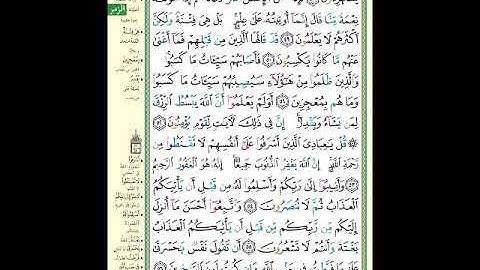 الزمر
نِعْمَةً مِّنَّا قَالَ إِنَّمَا أُوتِيتُهُ عَلَىٰ عِلْمٍ بَلْ هِيَ فِتْنَةٌ وَلَٰكِنَّ
أَكْثَرَهُمْ لَا يَعْلَمُونَ ٤٩ قَدْ قَالَهَا الَّذِينَ مِن قَبْلِهِمْ فَمَا أَغْنَىٰ
عَنْهُم مَّا كَانُوا يَكْسِبُونَ ٥٠ فَأَصَابَهُمْ سَيِّئَاتُ مَا كَسَبُوا
وَالَّذِينَ ظَلَمُوا مِنْ هَٰؤُلَاءِ سَيُصِيبُهُمْ سَيِّئَاتُ مَا كَسَبُوا
وَمَا هُم بِمُعْجِزِينَ ٥١ أَوَلَمْ يَعْلَمُوا أَنَّ اللَّهَ يَبْسُطُ الرِّزْقَ
لِمَن يَشَاءُ وَيَقْدِرُ إِنَّ فِي ذَٰلِكَ لَآيَاتٍ لِّقَوْمٍ يُؤْمِنُونَ ٥٢
قُلْ يَا عِبَادِيَ الَّذِينَ أَسْرَفُوا عَلَىٰ أَنفُسِهِمْ لَا تَقْنَطُوا مِن
رَّحْمَةِ اللَّهِ إِنَّ اللَّهَ يَغْفِرُ الذُّنُوبَ جَمِيعًا إِنَّهُ هُوَ الْغَفُورُ الرَّحِيمُ
٥٣ وَأَنِيبُوا إِلَىٰ رَبِّكُمْ وَأَسْلِمُوا لَهُ مِن قَبْلِ أَن يَأْتِيَكُمُ
الْعَذَابُ ثُمَّ لَا تُنصَرُونَ ٥٤ وَاتَّبِعُوا أَحْسَنَ مَا أُنزِلَ
إِلَيْكُم مِّن رَّبِّكُم مِّن قَبْلِ أَن يَأْتِيَكُمُ الْعَذَابُ
بَغْتَةً وَأَنتُمْ لَا تَشْعُرُونَ ٥٥ أَن تَقُولَ نَفْسٌ يَا حَسْرَتَىٰ
عَلَىٰ مَا فَرَّطتُ فِي جَنبِ اللَّهِ وَإِن كُنتُ لَمِنَ السَّاخِرِينَ